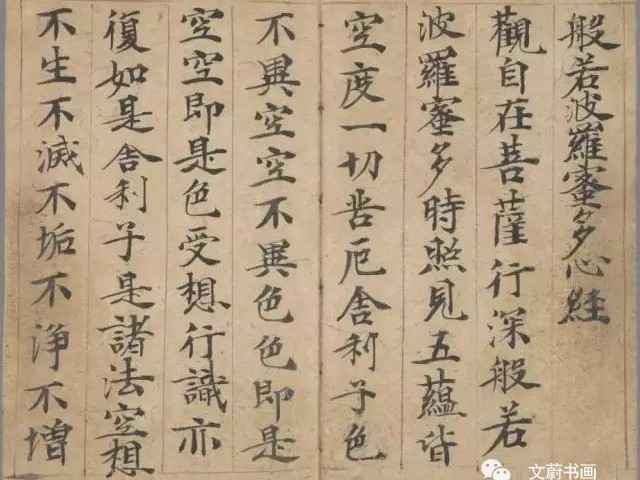 般若波羅蜜多心経
觀自在菩薩行深般若
波羅蜜多時照見五蘊皆
空度一切苦厄舍利子色
不異空空不異色色即是
空空即是色受想行識亦
復如是舍利子是諸法空想
不生不滅不垢不淨不增
文蔚书画